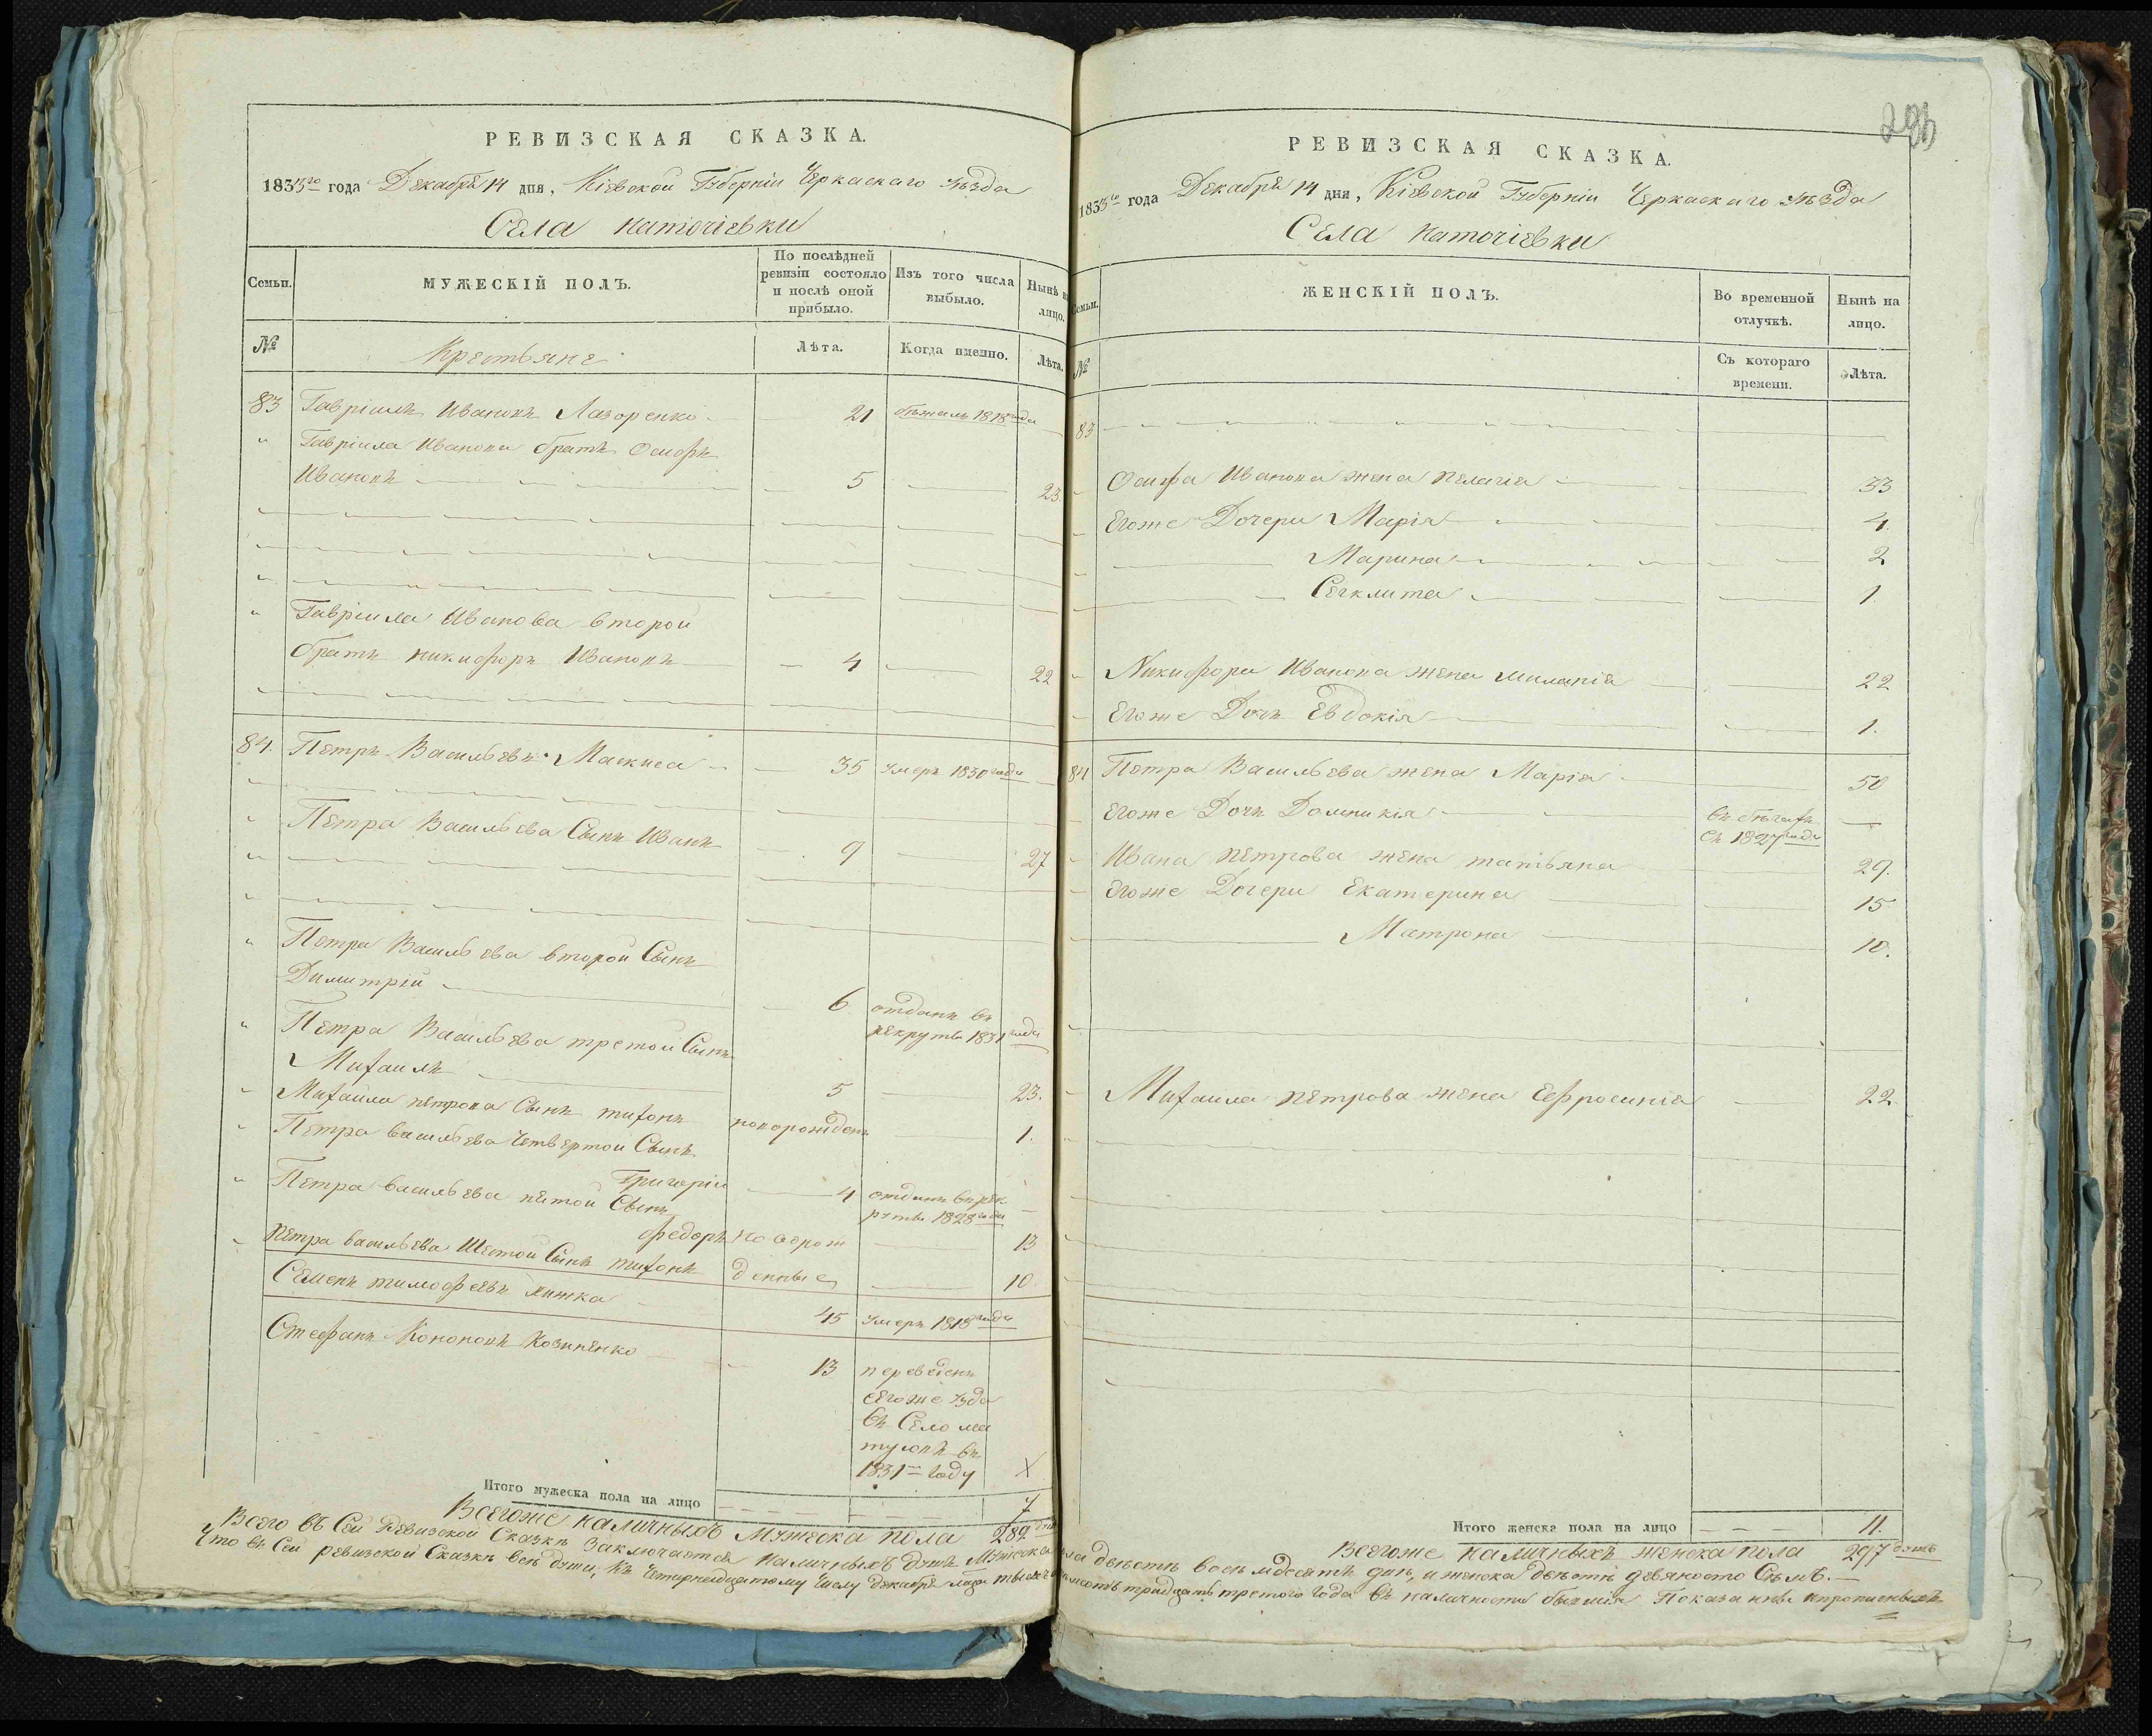 РЕВИЗСКАЯ СКАЗКА.
1833го года Декабря 14 дня, Кіевской Губерніи Черкаскаго Уѣзда
Села
Семьи.
МУЖЕСКІЙ ПОЛЪ.
По послѣдней ревизіи состояло и послѣ оной прибыло.
Изъ того числа выбыло.
Нынѣ на лицо.
№
Крестьяне
Лѣта.
Когда именно.
Лѣта.
83 Гавріилъ Ивановъ Лазоренко 21 бѣжалъ 1818 года
Гавріила Иванова братъ Осифъ
Ивановъ 5 23.
Гавріила Иванова второй
братъ Никифоръ Ивановъ 4 22
84. Петръ Васильевъ 35 умеръ 1830 года
Петра Васильева Сынъ Иванъ 9 27
Петра Васильева второй Сынъ
Димитрій 6 отданъ въ
рекруты 1831 года
Петра Васильева третой Сынъ
Михаилъ 5 23.
Михаила Петрова Сынъ Тихонъ новорожденъ 1.
Петра Васильева Четвертой Сынъ
Григорій 4 отданъ въ рек
руты 1828 года
Петра Васильева пятой Сынъ
Федоръ новорож 13
Петра Васильева Шестой Сынъ Тихонъ денные 10
Семенъ Тимофѣевъ 45 умеръ 1818 года
Стефанъ Кононовъ 13 переведенъ
сегоже уѣзда
въ Село Ма
тусовъ въ
1831м году
Итого мужеска пола на лицо 7
Всегоже наличныхъ Мужеска пола 289 душъ
Всего въ Сей Ревизской Сказкѣ Заключается наличныхъ душъ Мужска
Что въ Сей ревизской Сказкѣ всѣ души, къ Четырнадцатому Числу Декабря
РЕВИЗСКАЯ СКАЗКА.
1833го года Декабря 14 дня, Кіевской Губерніи Черкаскаго Уѣзда
Села
Семьи.
ЖЕНСКІЙ ПОЛЪ.
Во временной отлучкѣ.
Нынѣ на лицо.
№
Съ котораго времени.
Лѣта.
83
Осифа Иванова жена Пелагія 33
Егоже Дочери Марія 4.
Марина 2
1.
Никифора Иванова жена Миланія 22
Егоже Дочь Евдокія 1.
84 Петра Васильева жена Марія 50
Егоже Дочь Домникія въ бѣгахъ
съ 1827 года
Ивана Петрова жена Татьяна 29.
Егоже Дочери Екатерина 15
Матрона 10.
Михаила Петрова жена Ефросинія 22.
Итого женска пола на лицо 11.
Всегоже наличныхъ женска пола 297 душъ
пола двѣстѣ восьмдесятъ девять, и женска двѣстѣ девяносто Семь.
тридцать третого года въ наличности бывшія Показаны